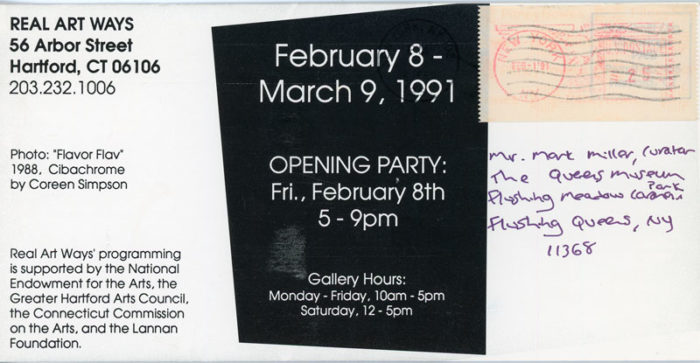 REAL ART WAYS
56 Arbor Street
Hartford, CT 06106
203.232.1006
Photo: "Flavor Flav"
1988, Cibachrome
by Coreen Simpson
Real Art Ways' programming
is supported by the National
Endowment for the Arts, the
Greater Hartford Arts Council,
the Connecticut Commission
on the Arts, and the Lannan
Foundation.
February 8 -
March 9, 1991
OPENING PARTY:
Fri., February 8th
5 - 9pm
Gallery Hours:
Monday - Friday, 10am - 5pm
Saturday, 12 - 5pm
NEW YORK
Mr. Mark Miller, Curator
The Queens Museum
Flushing Meadow
Park
Flushing Queens, NY
11368